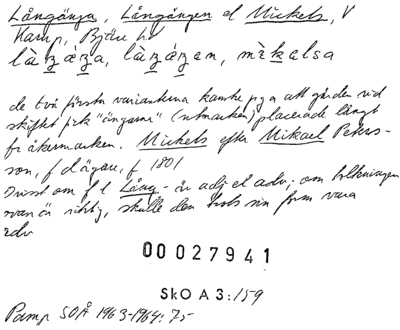 Långänga, Långängen el Mickels, V
Karup, Bjäre hd
là ŋ áŋa, là ŋ áŋen, mìkalsa
de två första varianterna kanske pga att gården vid
skiftet fick "ängarna" (utmarken) placerade långt
fr åkermarken. Mickels efter Mikael Peters-
son, f d ägare, f 1801
Ovisst om f l Lång- är adj el adv; om tolkningen
ovan är riktig, skulle den trots sin form vara
adv
00027941
SkO A 3:159
Pamp SOÅ 1963-1964:75